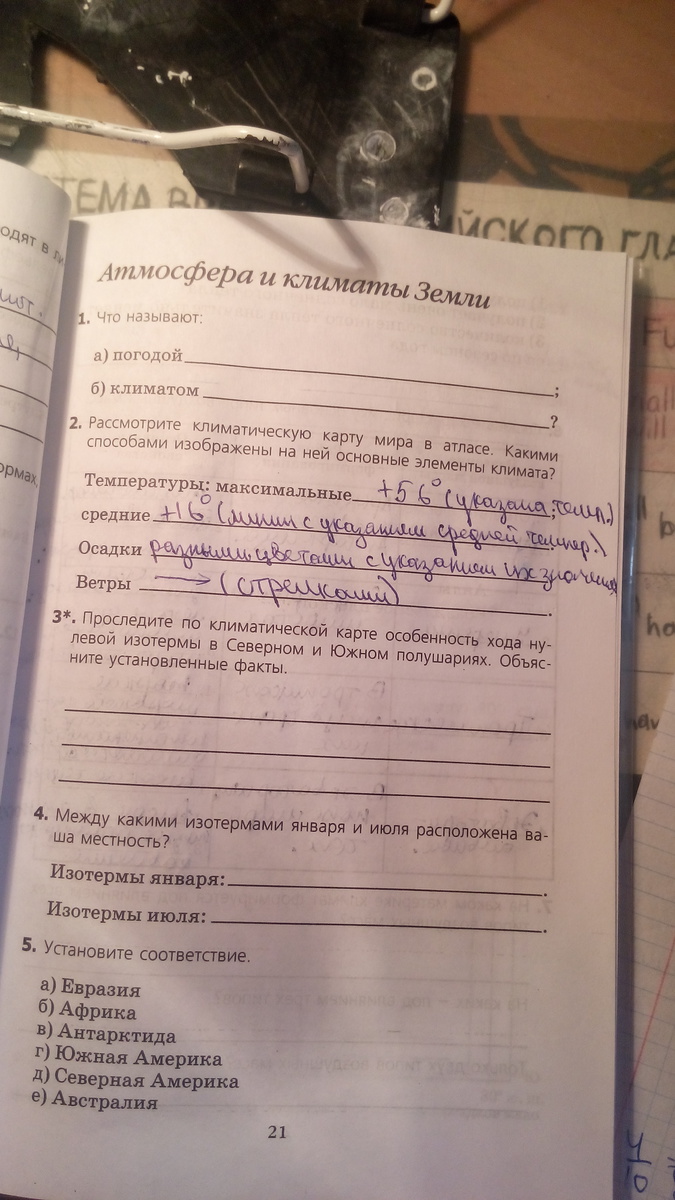 СТЕМА В
ЙСКОГО ГЛА
одят в
ормах,
Атмосфера и климаты Земли
1. Что называют:
а) погодой ;
б) климатом ?
2. Рассмотрите климатическую карту мира в атласе. Какими
способами изображены на ней основные элементы климата?
Температуры: максимальные +56° (указана, темп.)
средние +16° (линии с указанием средней темпер.)
Осадки разными цветами с указанием их значения
Ветры → (стрелками) .
3*. Проследите по климатической карте особенность хода ну-
левой изотермы в Северном и Южном полушариях. Объяс-
ните установленные факты.
4. Между какими изотермами января и июля расположена ва-
ша местность?
Изотермы января: .
Изотермы июля: .
5. Установите соответствие.
а) Евразия
б) Африка
в) Антарктида
г) Южная Америка
д) Северная Америка
е) Австралия
21
4
10